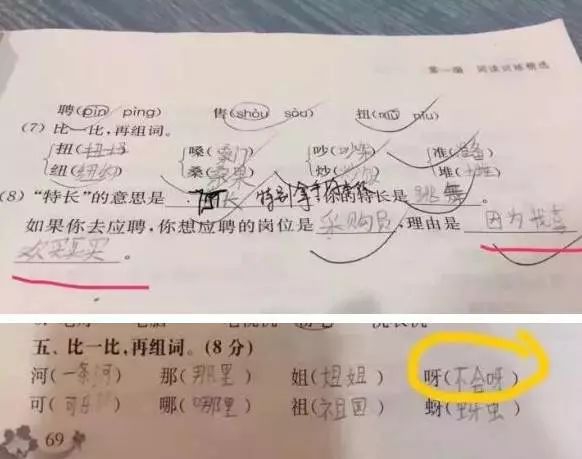 第一册 阅读训练精选
聘(pìn pìng) 售(shòu sòu) 扭(niǔ piǔ)
(7) 比一比,再组词。
扭( ) 嗓(嗓门) 吵(吵架) 准(准备)
纽(纽扣) 桑( ) 炒( ) 堆( )
(8)“特长”的意思是 特别拿手 你的特长是 跳舞 。
如果你去应聘,你想应聘的岗位是 采购员 ,理由是 因为我喜
欢买买买 。
五、比一比,再组词。(8分)
河(一条河) 那(那里) 姐(姐姐) 呀(不会呀)
可(可乐) 哪(哪里) 祖(祖国) 蚜(蚜虫)
69